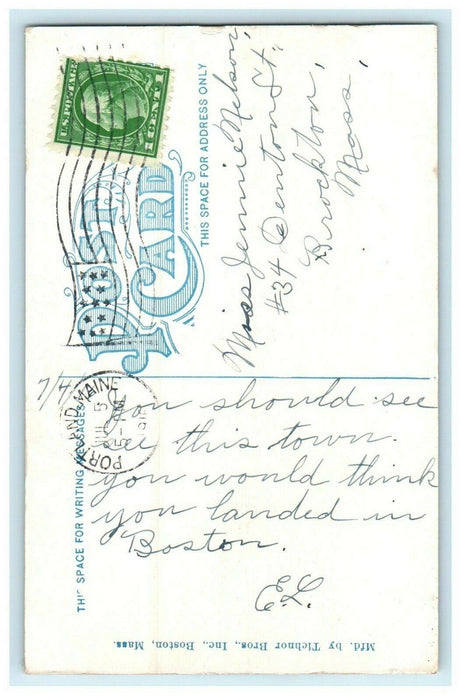 U.S. POSTAGE
1 CENT 1
POST CARD
THIS SPACE FOR ADDRESS ONLY
Miss Jennie Nelson,
#34 Denton St.
Brockton,
Mass.
PORTLAND MAINE
JUL 5
5-AM
THIS SPACE FOR WRITING MESSAGES
7/4
you should see
this town.
you would think
you landed in
Boston.
E.L.
Mfd. by Tichnor Bros., Inc., Boston, Mass.